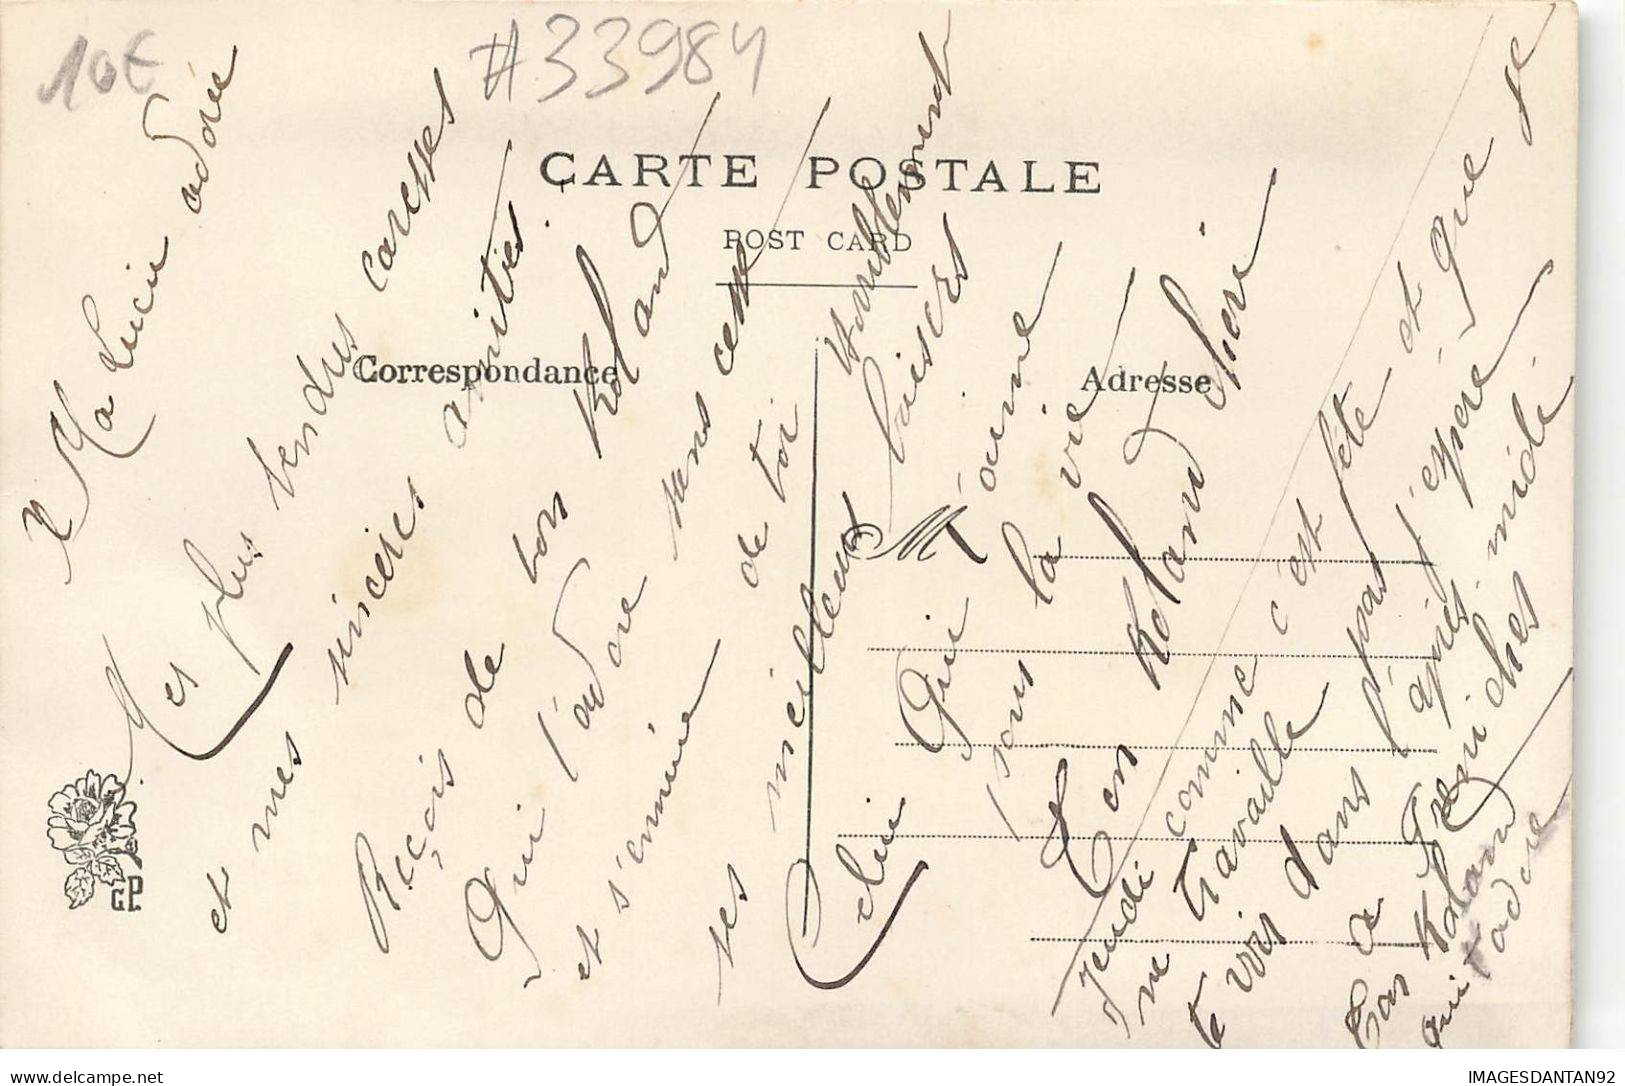 10€
#33984
CARTE POSTALE
POST CARD
Correspondance
Adresse
Ma Lucie adorée
Mes plus tendres caresses
et mes sincères amitiés.
Reçois de ton Roland
Qui t'adore sans cesse
et s'ennuie de toi terriblement
ses meilleurs baisers
Celui
Qui t'aime
pour la vie
Ton Roland chéri
Jeudi comme c'est fête et que je
ne travaille pas j'espère
te voir dans l'après-midi
a
Ton Roland
qui t'adore
M
G.P.
delcampe.net
IMAGESDANTAN92